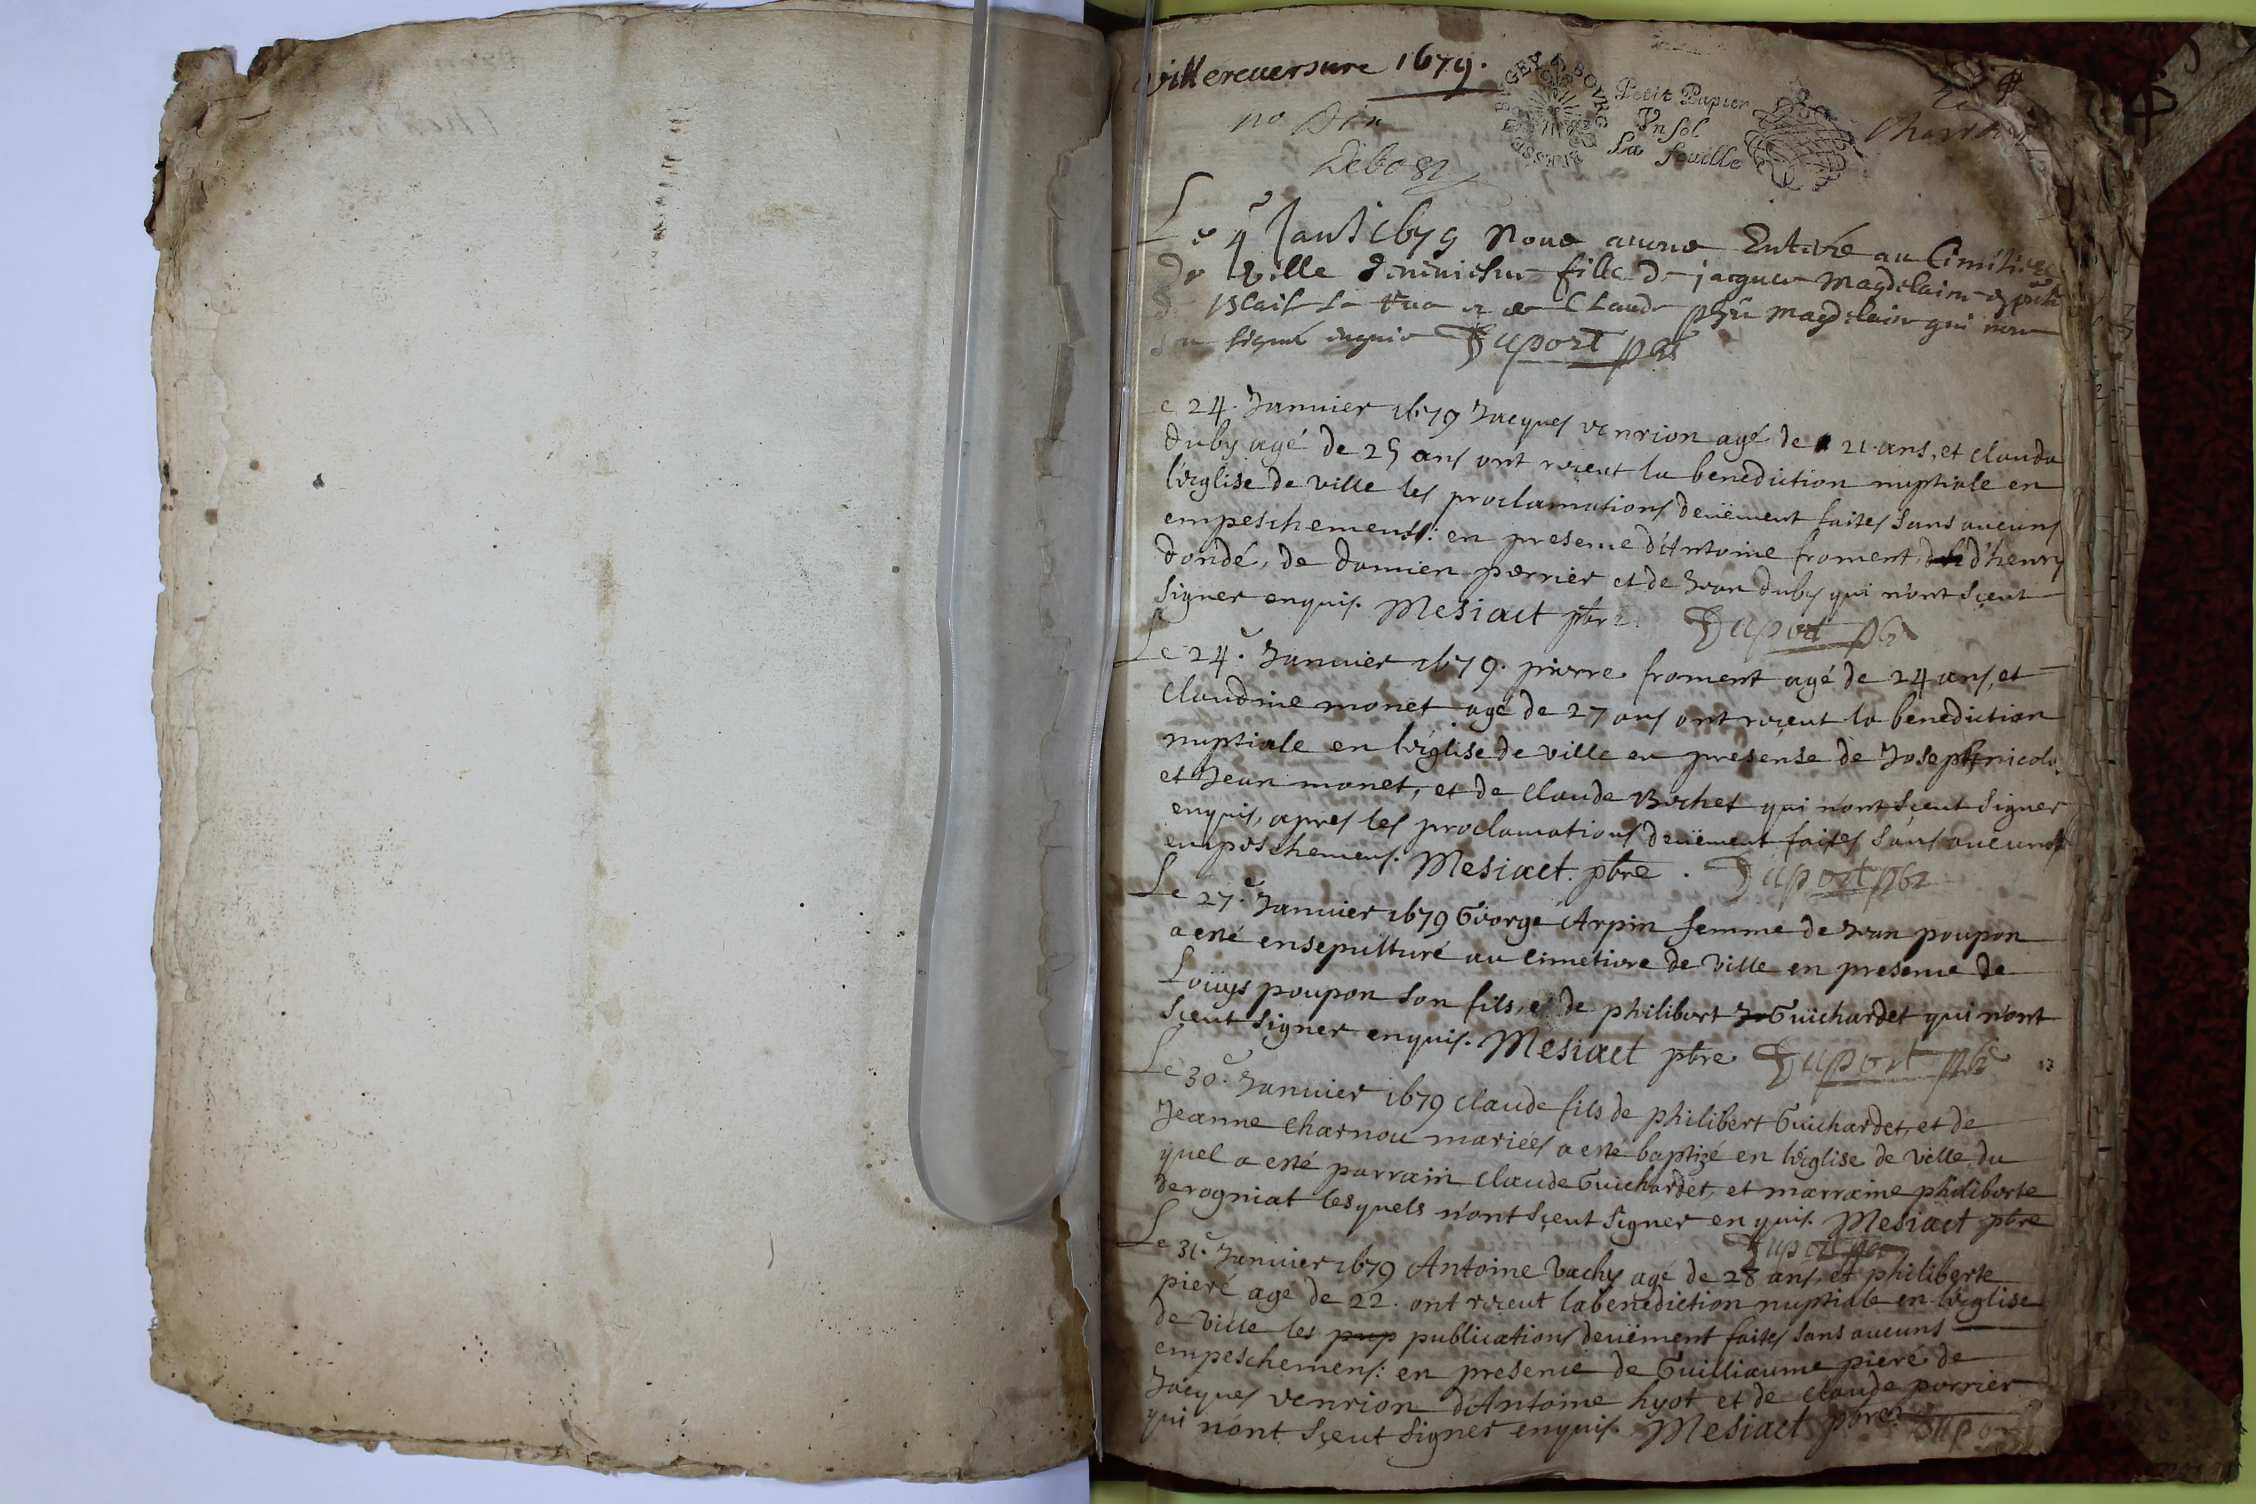 Villereuersure 1679.
BOVRG BVGEY BRESSE
Petit Papier
Vn Sol
La feuille
Le 4e Janu 1679 Nous auons Enterré au Cimitiere
de Ville fille de jacques Magdelain
Claude Magdelain qui non
signé enquis Duport pbr
Le 24. Januier 1679 Jacques venrion agé de 21. ans, et clauda
duby agé de 25 ans ont receut la benediction nuptiale en
l'eglise de ville les proclamations deuëment faites sans aucuns
empeschemens: en presence d'Antoine froment, d'henry
dondé, de damien perrier et de Jean duby qui n'ont sçeut
signer enquis. Mesiact pbre. Duport pbr
Le 24.e Januier 1679. pierre froment agé de 24 ans, et
claudine monet agé de 27 ans ont reçeut la benediction
nuptiale en l'eglise de ville en presense de Joseph nicolo,
et Jean monet, et de claude Bochet qui n'ont sçeut signer
enquis, apres les proclamations deuëment faites sans aucuns
empeschemens. Mesiact. pbre. Duport pbr
Le 27.e Januier 1679 George Arpin femme de Jean poupon
a esté ensepulturé au cimetiere de ville en presence de
Loüys poupon son fils, et de philibert Guichardet qui n'ont
sçeut signer enquis. Mesiact pbre Duport pbr
13
Le 30.e Januier 1679 claude fils de philibert Guichardet, et de
Jeanne charnou mariées a esté baptizé en l'eglise de ville du
quel a esté parrain claude Guichardet, et marraine philiberte
derogniat lesquels n'ont sçeut signer enquis. Mesiact pbre
Duport pbr
Le 31.e Januier 1679 Antoine Vachy agé de 28 ans, et philiberte
pieré age de 22. ont reçeut la benediction nuptiale en l'eglise
de ville les pup publications deuëment faites sans aucuns
empeschemens: en presence de Guilliaume pieré de
Jacques venrion d'Antoine hyot et de claude perrier
qui n'ont sçeut signer enquis. Mesiact pbre. Duport